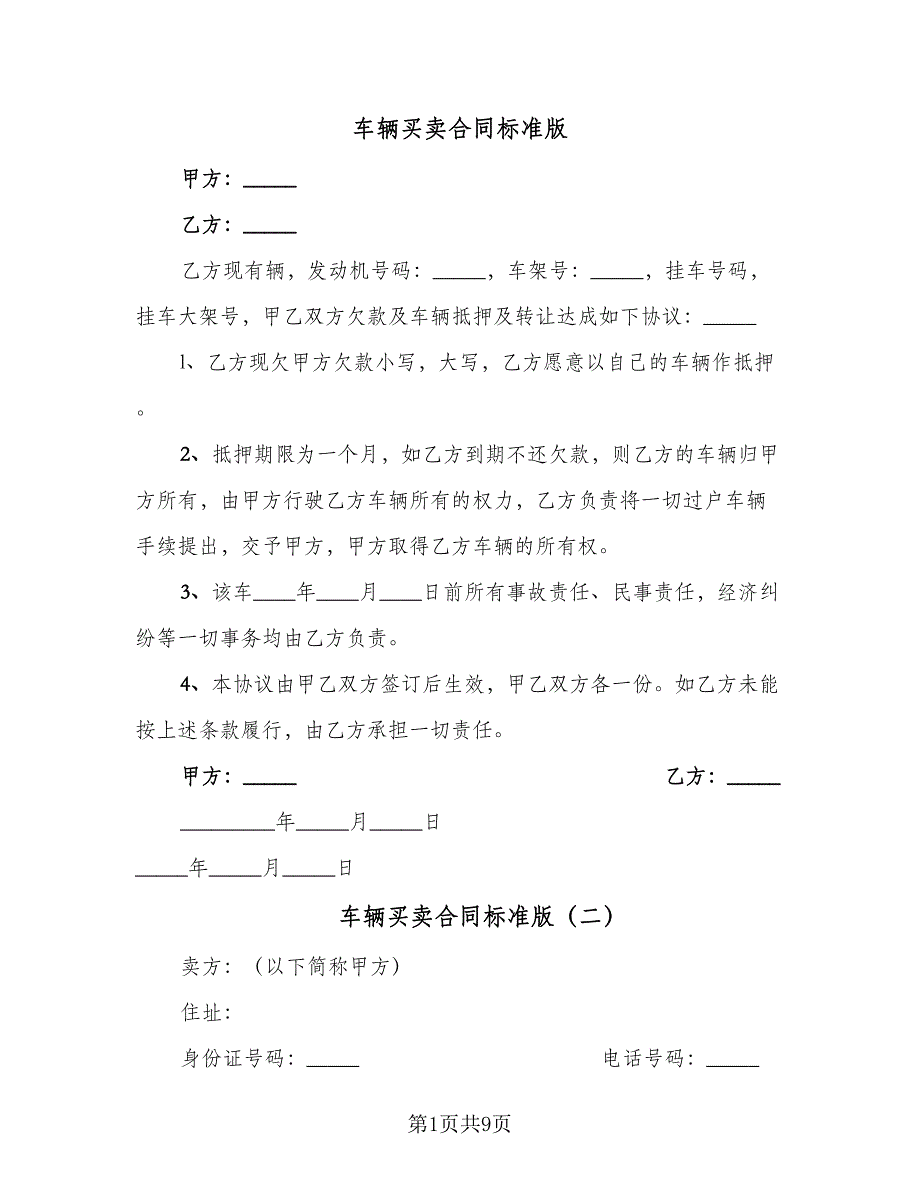 车辆买卖合同标准版
甲方：_____
乙方：_____
乙方现有辆，发动机号码：_____，车架号：_____，挂车号码，
挂车大架号，甲乙双方欠款及车辆抵押及转让达成如下协议：_____
1、乙方现欠甲方欠款小写，大写，乙方愿意以自己的车辆作抵押
。
2、抵押期限为一个月，如乙方到期不还欠款，则乙方的车辆归甲
方所有，由甲方行驶乙方车辆所有的权力，乙方负责将一切过户车辆
手续提出，交予甲方，甲方取得乙方车辆的所有权。
3、该车____年____月____日前所有事故责任、民事责任，经济纠
纷等一切事务均由乙方负责。
4、本协议由甲乙双方签订后生效，甲乙双方各一份。如乙方未能
按上述条款履行，由乙方承担一切责任。
甲方：_____ 乙方：_____
_________年_____月_____日
_____年_____月_____日
车辆买卖合同标准版（二）
卖方：（以下简称甲方）
住址：
身份证号码：_____ 电话号码：_____
第1页共9页